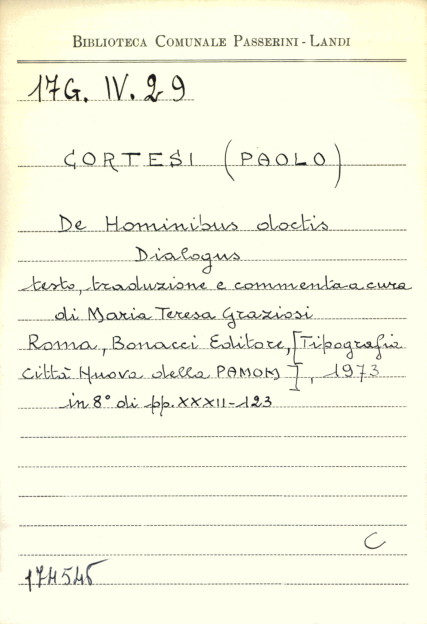 BIBLIOTECA COMUNALE PASSERINI-LANDI
17G. IV. 29
CORTESI (PAOLO)
De Hominibus doctis
Dialogus
testo, traduzione e commento a cura
di Maria Teresa Graziosi
Roma, Bonacci Editore, [Tipografia
Città Nuova della PAMOM], 1973
in 8° di pp. XXXII-123
C
174545